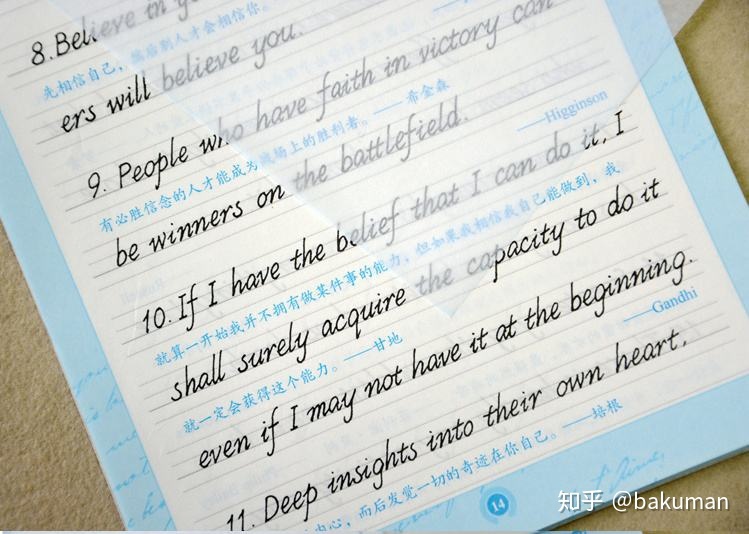 8. Believe in
先相信自己，然后别人才会相信你。
ers will believe you.
9. People who have faith in victory can
有必胜信念的人才能成为战场上的胜利者。——希金森
be winners on the battlefield. ——Higginson
10. If I have the belief that I can do it, I
就算一开始我并不拥有做某件事的能力，但如果我相信我自己能做到，我
shall surely acquire the capacity to do it
就一定会获得这个能力。——甘地
even if I may not have it at the beginning.
——Gandhi
11. Deep insights into their own heart,
内心，而后发觉一切的奇迹在你自己。——培根
14
知乎 @bakuman